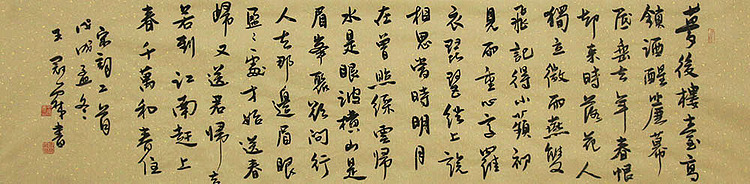 夢後樓臺高
鎖酒醒簾幕
低垂去年春恨
却來時落花人
獨立微雨燕雙
飛記得小蘋初
見兩重心字羅
衣琵琶弦上說
相思當時明月
在曾照綵雲歸
水是眼波橫山是
眉峯聚欲問行
人去那邊眉眼
盈〻處才始送春
歸又送君歸去
若到江南趕上
春千萬和春住
宋詞二首
孟冬
王書